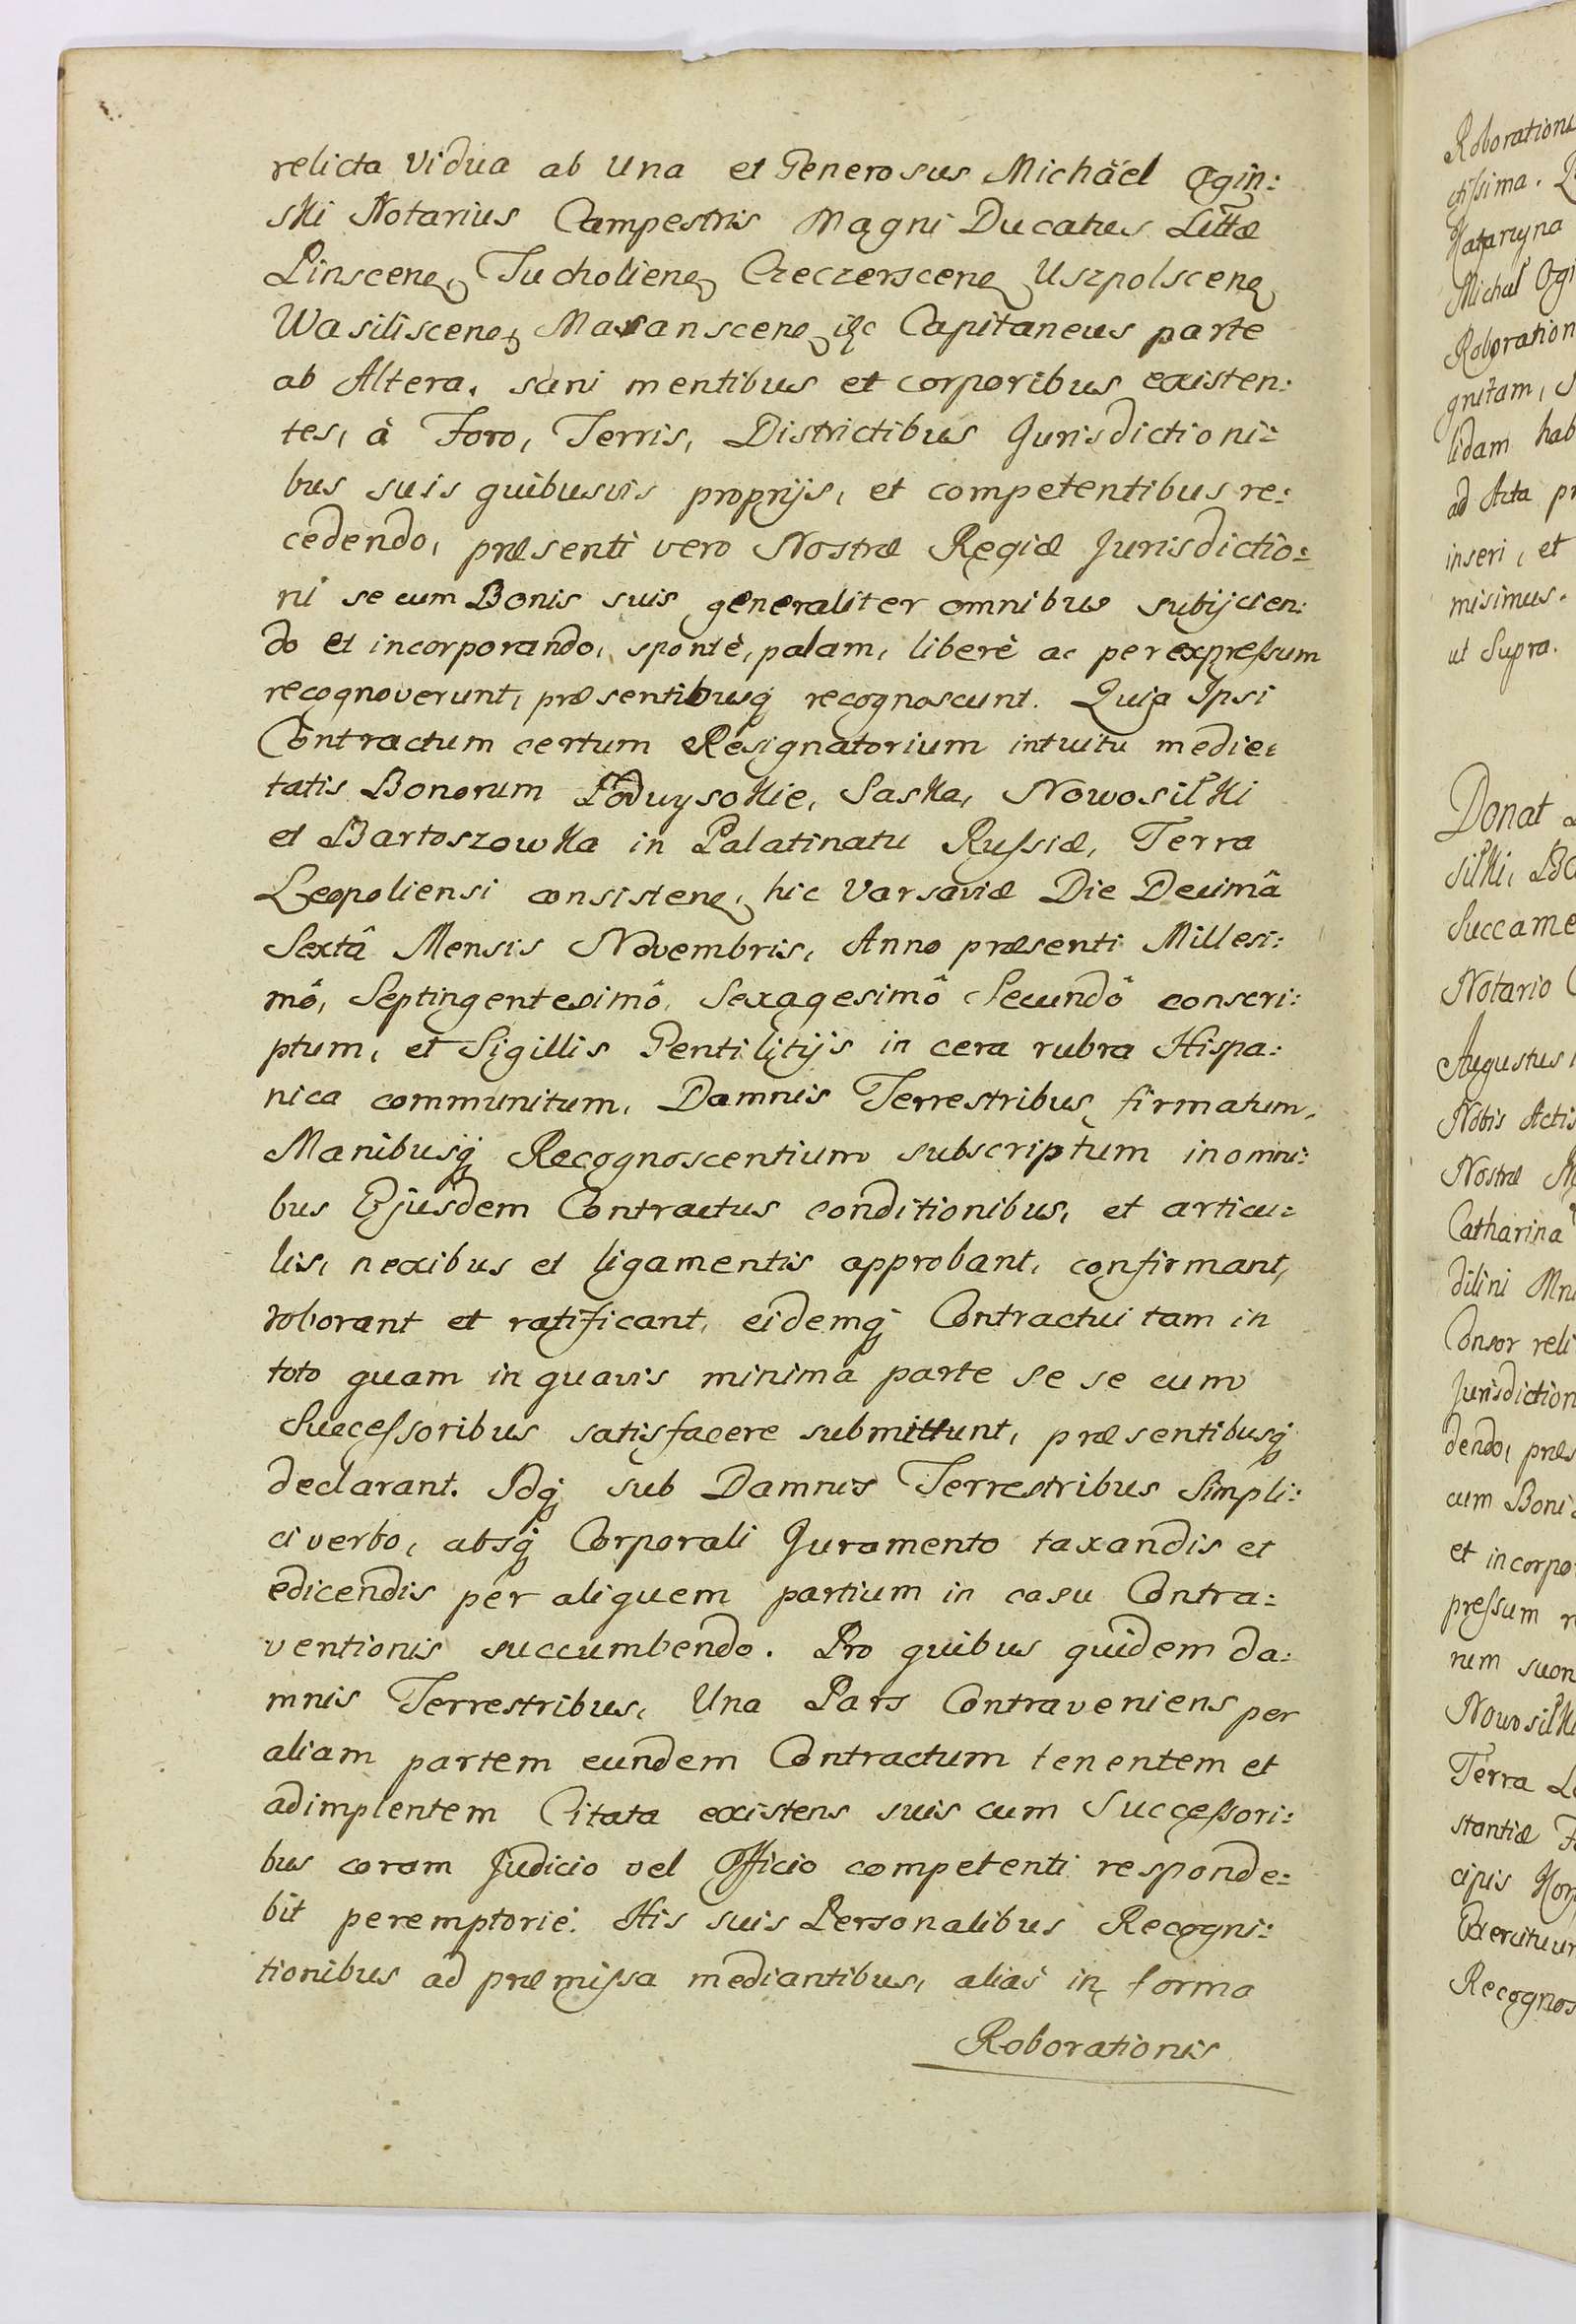 relicta Vidua ab Una et Generosus Michäel Ogin:
ski Notarius Campestris Magni Ducatus Littæ
Pinscen, Tucholien, Czeczerscen, Uszpolscen
Wasiliscen, Maranscen, &c Capitaneus parte
ab Altera, sani mentibus et corporibus existen:
tes, à Foro, Terris, Districtibus Jurisdictioni:
bus suis quibusvis proprijs, et competentibus re:
cedendo, præsenti vero Nostræ Regiæ Jurisdictio:
ni se cum Bonis suis generaliter omnibus subijcien:
do et incorporando, spontè, palam, liberè ac per expreſsum
recognoverunt, præsentibusq recognoscunt. Quia Ipsi
Contractum certum Resignatorium intuitu medie:
tatis Bonorum Podwysokie, Saska, Nowosiłki
et Bartoszowka in Palatinatu Ruſsiæ, Terra
Leopoliensi consisten, hic Varsaviæ Die Decimâ
Sextâ Mensis Novembris, Anno præsenti Millesi:
mô, Septingentesimô, Sexagesimô Secundô conscri:
ptum, et Sigillis Gentilitijs in cera rubra Hispa:
nica communitum, Damnis Terrestribus firmatum,
Manibusq Recognoscentium subscriptum in omni:
bus Ejusdem Contractus conditionibus, et articu:
lis, nexibus et ligamentis approbant, confirmant,
roborant et ratificant, eidemq Contractui tam in
toto quam in quavis minima parte se se cum
Succeſsoribus satisfacere submittunt, præsentibusq
declarant. Idq sub Damnis Terrestribus Simpli:
ci verbo, absq Corporali Juramento taxandis et
edicendis per aliquem partium in casu Contra:
ventionis succumbendo. Pro quibus quidem da:
mnis Terrestribus, Una Pars Contraveniens per
aliam partem eundem Contractum tenentem et
adimplentem Citata existens suis cum Succeſsori:
bus coram Judicio vel Officio competenti responde:
bit peremptoriè. His suis Personalibus Recogni:
tionibus ad præmiſsa mediantibus, aliàs in forma
Roborationis
Roborationis
ctiſsima.
Katarzyna
Michał Ogi
Roboration
gnitam, s
lidam hab
ad Acta pr
inseri, et
misimus.
ut Supra.
Donat
siłki, Ba
Succame
Notario C
Augustus
Nobis Actis
Nostræ
Catharina
dilini Mn
Consor reli
Jurisdiction
dendo, præs
cum Boni
et incorpo
preſsum r
num suor
Nowosiłki
Terra Le
stantiæ
cipis Kor
Exercituu
Recognos